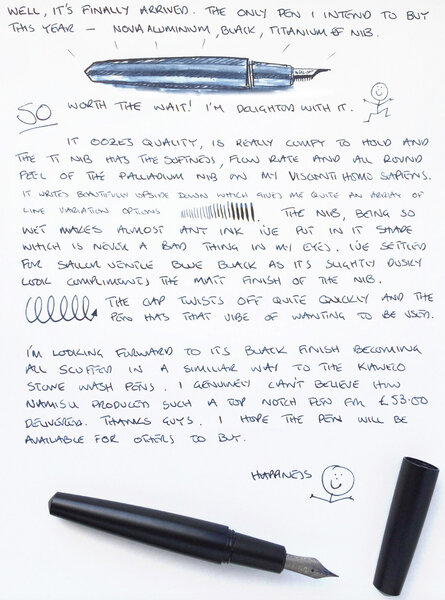 WELL, IT'S FINALLY ARRIVED. THE ONLY PEN I INTEND TO BUY
THIS YEAR – NOVA ALUMINIUM, BLACK, TITANIUM EF NIB.
SO WORTH THE WAIT! I'M DELIGHTED WITH IT.
IT OOZES QUALITY, IS REALLY COMFY TO HOLD AND
THE TI NIB HAS THE SOFTNESS, FLOW RATE AND ALL ROUND
FEEL OF THE PALLADIUM NIB ON MY VISCONTI HOMO SAPIENS.
IT WRITES BEAUTIFULLY UPSIDE DOWN WHICH GIVES ME QUITE AN ARRAY OF
LINE VARIATION OPTIONS. THE NIB, BEING SO
WET MAKES ALMOST ANY INK I'VE PUT IN IT SHADE
WHICH IS NEVER A BAD THING IN MY EYES. I'VE SETTLED
FOR SAILOR YENTLE BLUE BLACK AS ITS SLIGHTLY DUSKY
LOOK COMPLIMENTS THE MATT FINISH OF THE NIB.
THE CAP TWISTS OFF QUITE QUICKLY AND THE
PEN HAS THAT VIBE OF WANTING TO BE USED.
I'M LOOKING FORWARD TO ITS BLACK FINISH BECOMING
ALL SCUFFED IN A SIMILAR WAY TO THE KAWECO
STONE WASH PENS. I GENUINELY CAN'T BELIEVE HOW
NAMISU PRODUCED SUCH A TOP NOTCH PEN FOR £53.00
DELIVERED. THANKS GUYS. I HOPE THE PEN WILL BE
AVAILABLE FOR OTHERS TO BUY.
HAPPINESS